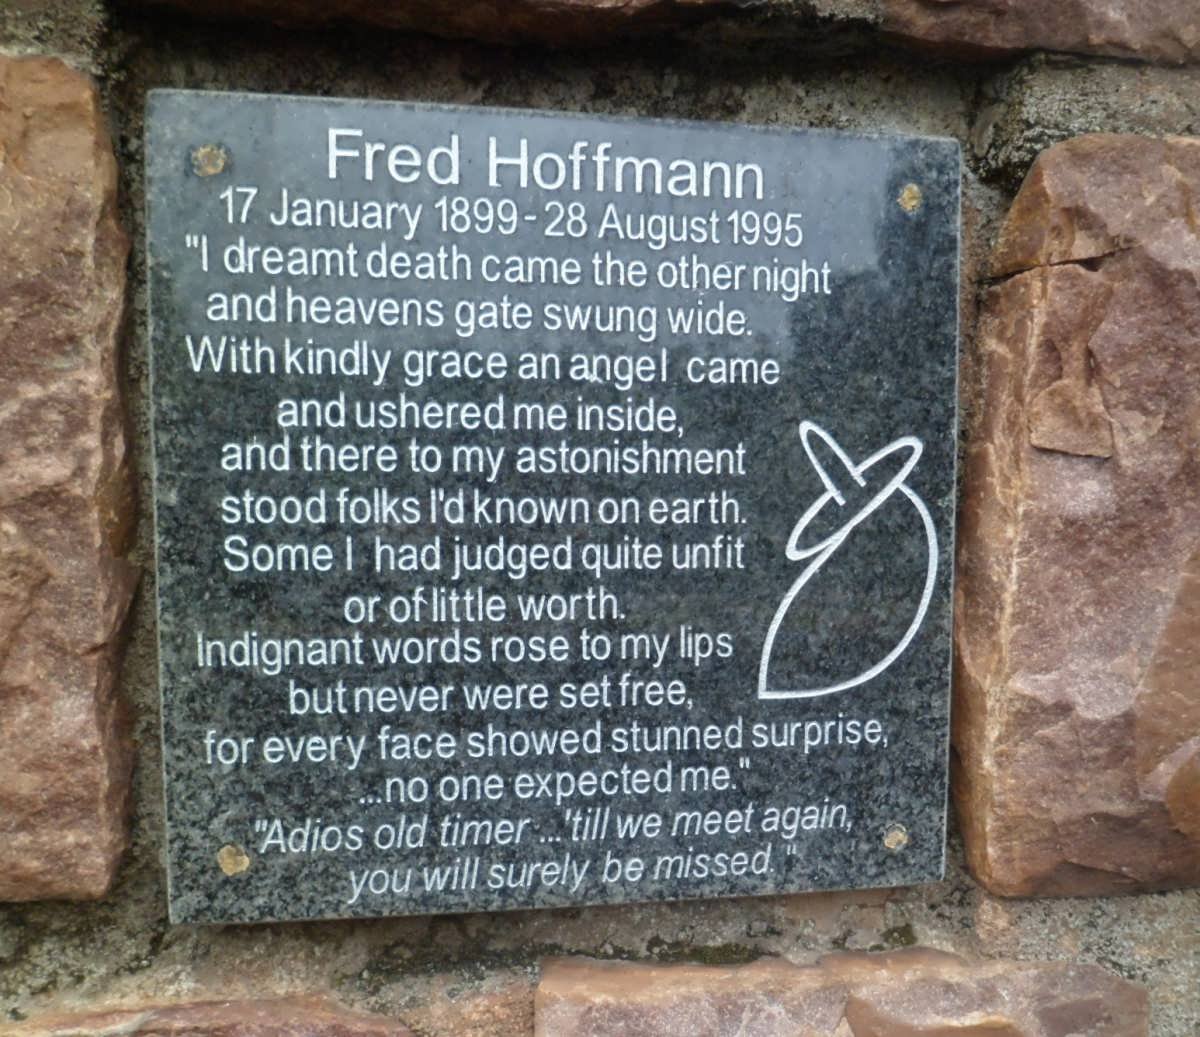 Fred Hoffmann
17 January 1899 - 28 August 1995
"I dreamt death came the other night
and heavens gate swung wide.
With kindly grace an angel came
and ushered me inside,
and there to my astonishment
stood folks I'd known on earth.
Some I had judged quite unfit
or of little worth.
Indignant words rose to my lips
but never were set free,
for every face showed stunned surprise,
...no one expected me."
"Adios old timer ...'till we meet again,
you will surely be missed."